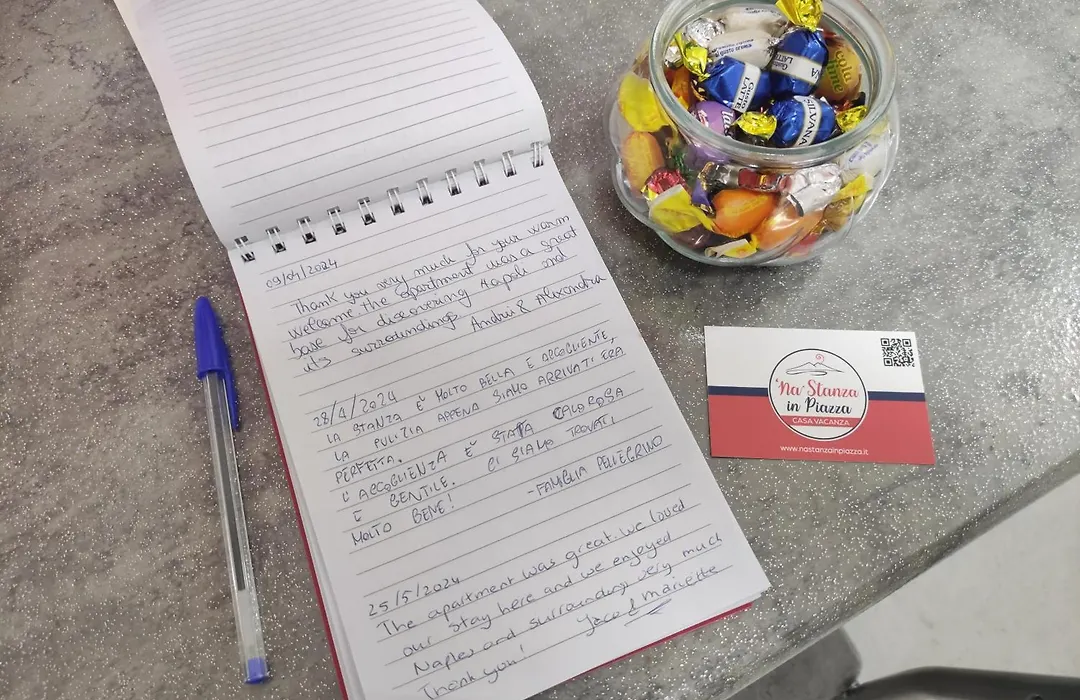 09/04/2024
Thank you very much for your warm
welcome, the apartment was a great
base for discovering Napoli and
its surroundings. Andrei & Alexandra
28/4/2024
LA STANZA È MOLTO BELLA E ACCOGLIENTE,
LA PULIZIA APPENA SIAMO ARRIVATI ERA
PERFETTA.
L'ACCOGLIENZA È STATA CALOROSA
E GENTILE. CI SIAMO TROVATI
MOLTO BENE!
-FAMIGLIA PELLEGRINO
25/5/2024
The apartment was great. We loved
our stay here and we enjoyed
Naples and surroundings very much
Thank you! Jaco & Mariette
GUSTO
LATTE
SILVANA
'Na Stanza
in Piazza
CASA VACANZA
www.nastanzainpiazza.it